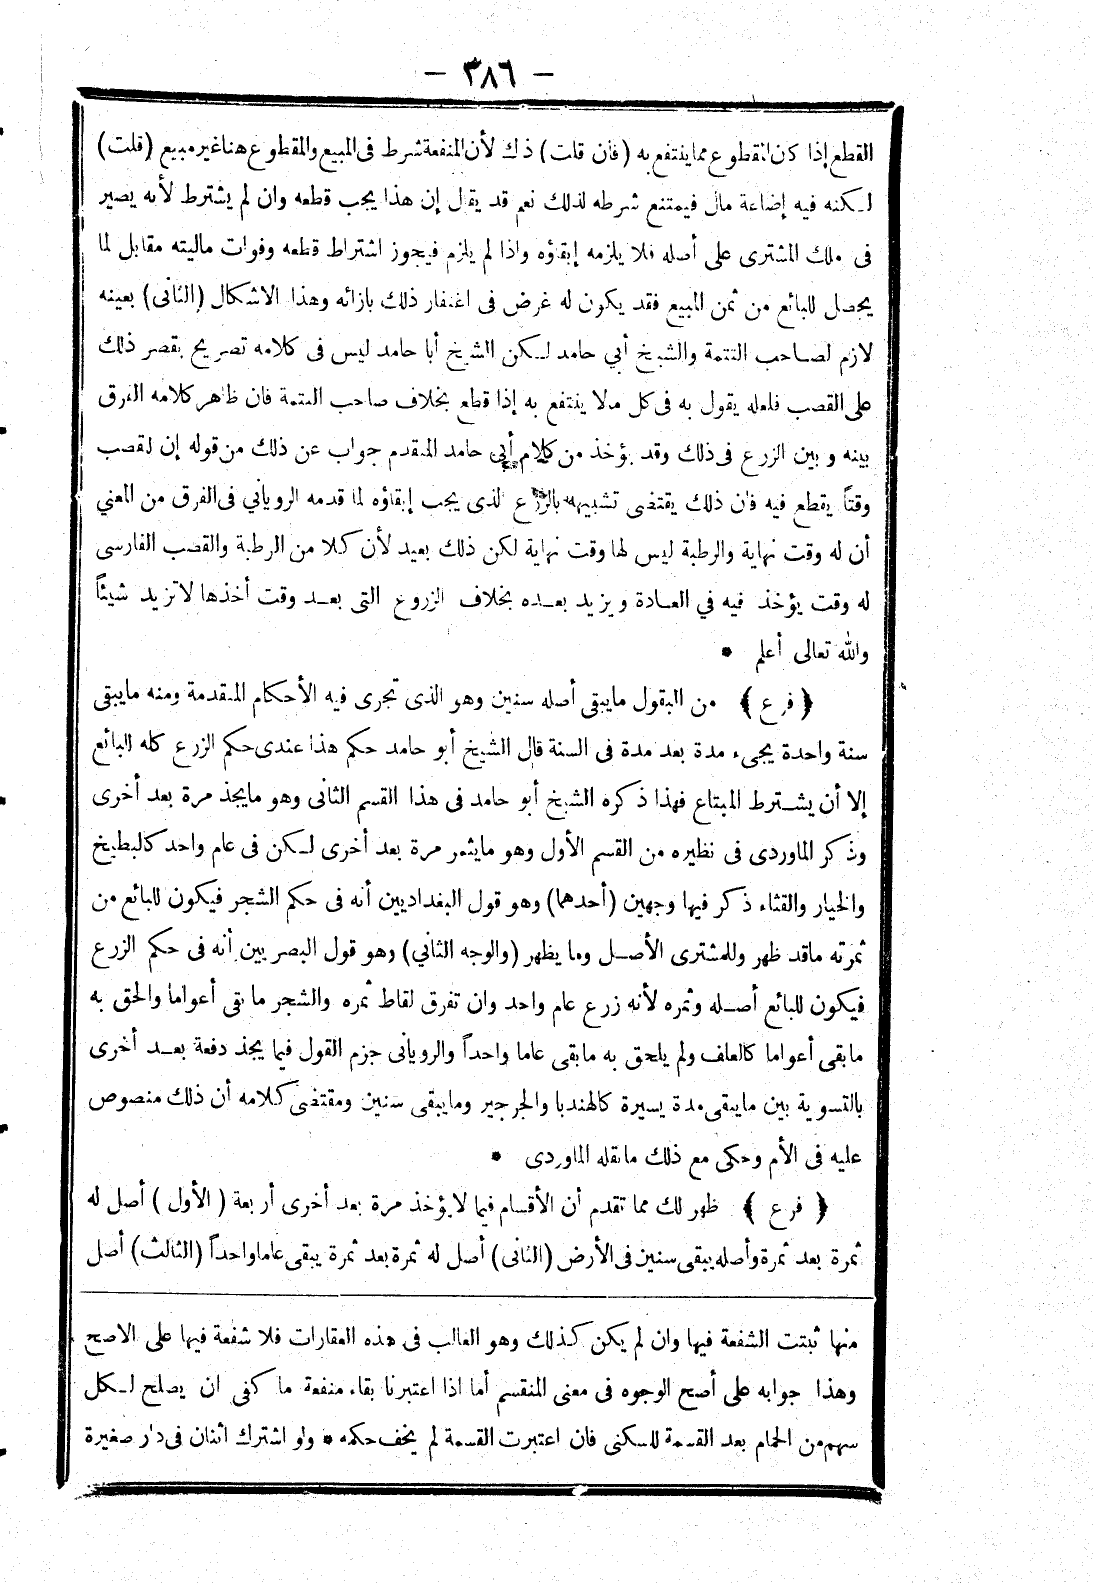 - ٣٨٦ -
القطع إذا كان المقطوع مما ينتفع به (فان قلت) ذاك لأن المنفعة شرط فى المبيع والمقطوع هنا غير مبيع (قلت)
لكنه فيه إضاعة مال فيمتنع شرطه لذلك نعم قد يقال إن هذا يجب قطعه وان لم يشترط لأنه يصير
فى ملك المشترى على أصله فلا يلزمه إبقاؤه واذا لم يلزم فيجوز اشتراط قطعه وفوات ماليته مقابل لما
يحصل للبائع من ثمن المبيع فقد يكون له غرض فى اغتفار ذلك بازائه وهذا الاشكال (الثانى) بعينه
لازم لصاحب التتمة والشيخ أبي حامد لكن الشيخ أبا حامد ليس فى كلامه تصريح بقصر ذلك
على القصب فلعله يقول به فى كل مالا ينتفع به إذا قطع بخلاف صاحب التتمة فان ظاهر كلامه الفرق
بينه وبين الزرع فى ذلك وقد يؤخذ من كلام أبي حامد المتقدم جواب عن ذلك من قوله إن القصب
وقتاً يقطع فيه فان ذلك يقتضى تشبيهه بالزرع الذى يجب إبقاؤه لما قدمه الروياني فى الفرق من المعني
أن له وقت نهاية والرطبة ليس لها وقت نهاية لكن ذلك بعيد لأن كلا من الرطبة والقصب الفارسى
له وقت يؤخذ فيه في العادة ويزيد بعده بخلاف الزروع التى بعد وقت أخذها لا تزيد شيئاً
والله تعالى أعلم *
﴿ فرع ﴾ من البقول مايبقى أصله سنين وهو الذى تجرى فيه الأحكام المتقدمة ومنه مايبقى
سنة واحدة يجىء مدة بعد مدة فى السنة قال الشيخ أبو حامد حكم هذا عندى حكم الزرع كله البائع
إلا أن يشترط المبتاع فهذا ذكره الشيخ أبو حامد فى هذا القسم الثانى وهو مايجذ مرة بعد أخرى
وذكر الماوردى فى نظيره من القسم الأول وهو مايثمر مرة بعد أخرى لكن فى عام واحد كالبطيخ
والخيار والقثاء ذكر فيها وجهين (أحدهما) وهو قول البغداديين أنه فى حكم الشجر فيكون للبائع من
ثمرته ماقد ظهر وللمشترى الأصل وما يظهر (والوجه الثاني) وهو قول البصريين أنه فى حكم الزرع
فيكون للبائع أصله وثمره لأنه زرع عام واحد وان تفرق لقاط ثمره والشجر ما بقى أعواما والحق به
ما بقى أعواما كالعلف ولم يلحق به مابقى عاما واحداً والرويانى جزم القول فيما يجذ دفعة بعد أخرى
بالتسوية بين مايبقى مدة يسيرة كالهندبا والجرجير ومايبقى سنين ومقتضى كلامه أن ذلك منصوص
عليه فى الأم وحكى مع ذلك مانقله الماوردى *
﴿ فرع ﴾ ظهر لك مما تقدم أن الأقسام فيما لايؤخذ مرة بعد أخرى أربعة ( الأول ) أصل له
ثمرة بعد ثمرة وأصله يبقى سنين فى الأرض (الثانى) أصل له ثمرة بعد ثمرة يبقى عاما واحداً (الثالث) أصل
منها ثبتت الشفعة فيها وان لم يكن كذلك وهو الغالب فى هذه العقارات فلا شفعة فيها على الاصح
وهذا جوابه على أصح الوجوه فى معنى المنقسم أما اذا اعتبرنا بقاء منفعة ما كفى ان يصلح لكل
سهم من الحمام بعد القسمة للسكنى فان اعتبرت القسمة لم يخف حكمه * ولو اشترك اثنان فى دار صغيرة